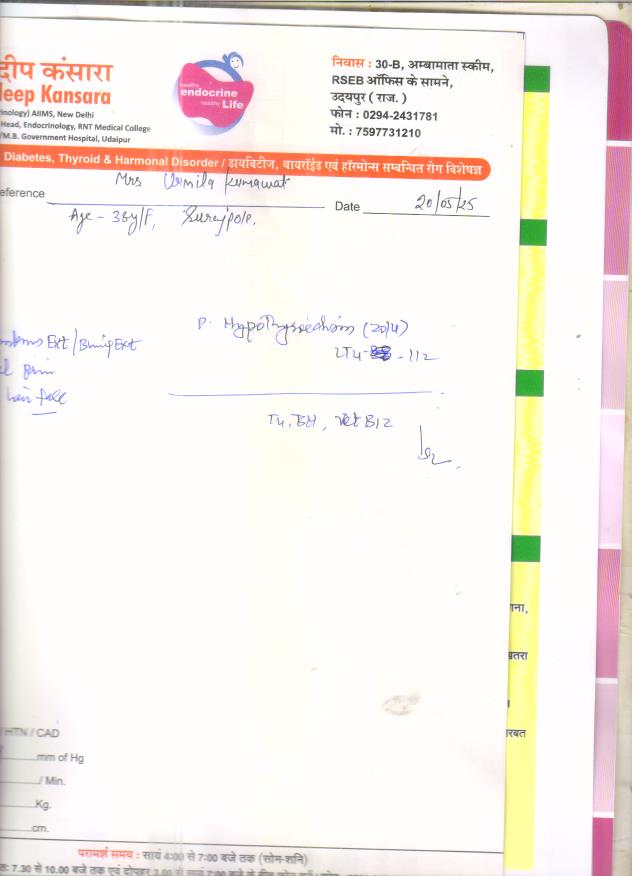 दीप कंसारा
deep Kansara
rinology) AIIMS, New Delhi
Head, Endocrinology, RNT Medical College
/M.B. Government Hospital, Udaipur
healthy
endocrine
healthy Life
निवास : 30-B, अम्बामाता स्कीम,
RSEB ऑफिस के सामने,
उदयपुर ( राज. )
फोन : 0294-2431781
मो. : 7597731210
Diabetes, Thyroid & Harmonal Disorder / डायबिटीज, थायरॉईड एवं हॉरमोन्स सम्बन्धित रोग विशेषज्ञ
eference Mrs Urmila Kumawat
Date 20/05/25
Age - 38y/F, Surajpole.
Ext/
hair fall
(2014)
LT4 - 112
T4, B12
/ HTN / CAD
mm of Hg
/ Min.
Kg.
cm.
परामर्श समय : सायं 4:00 से 7:00 बजे तक (सोम-शनि)
त: 7.30 से 10.00 बजे तक एवं दोपहर 3.00 से
गना,
खतरा
रबत